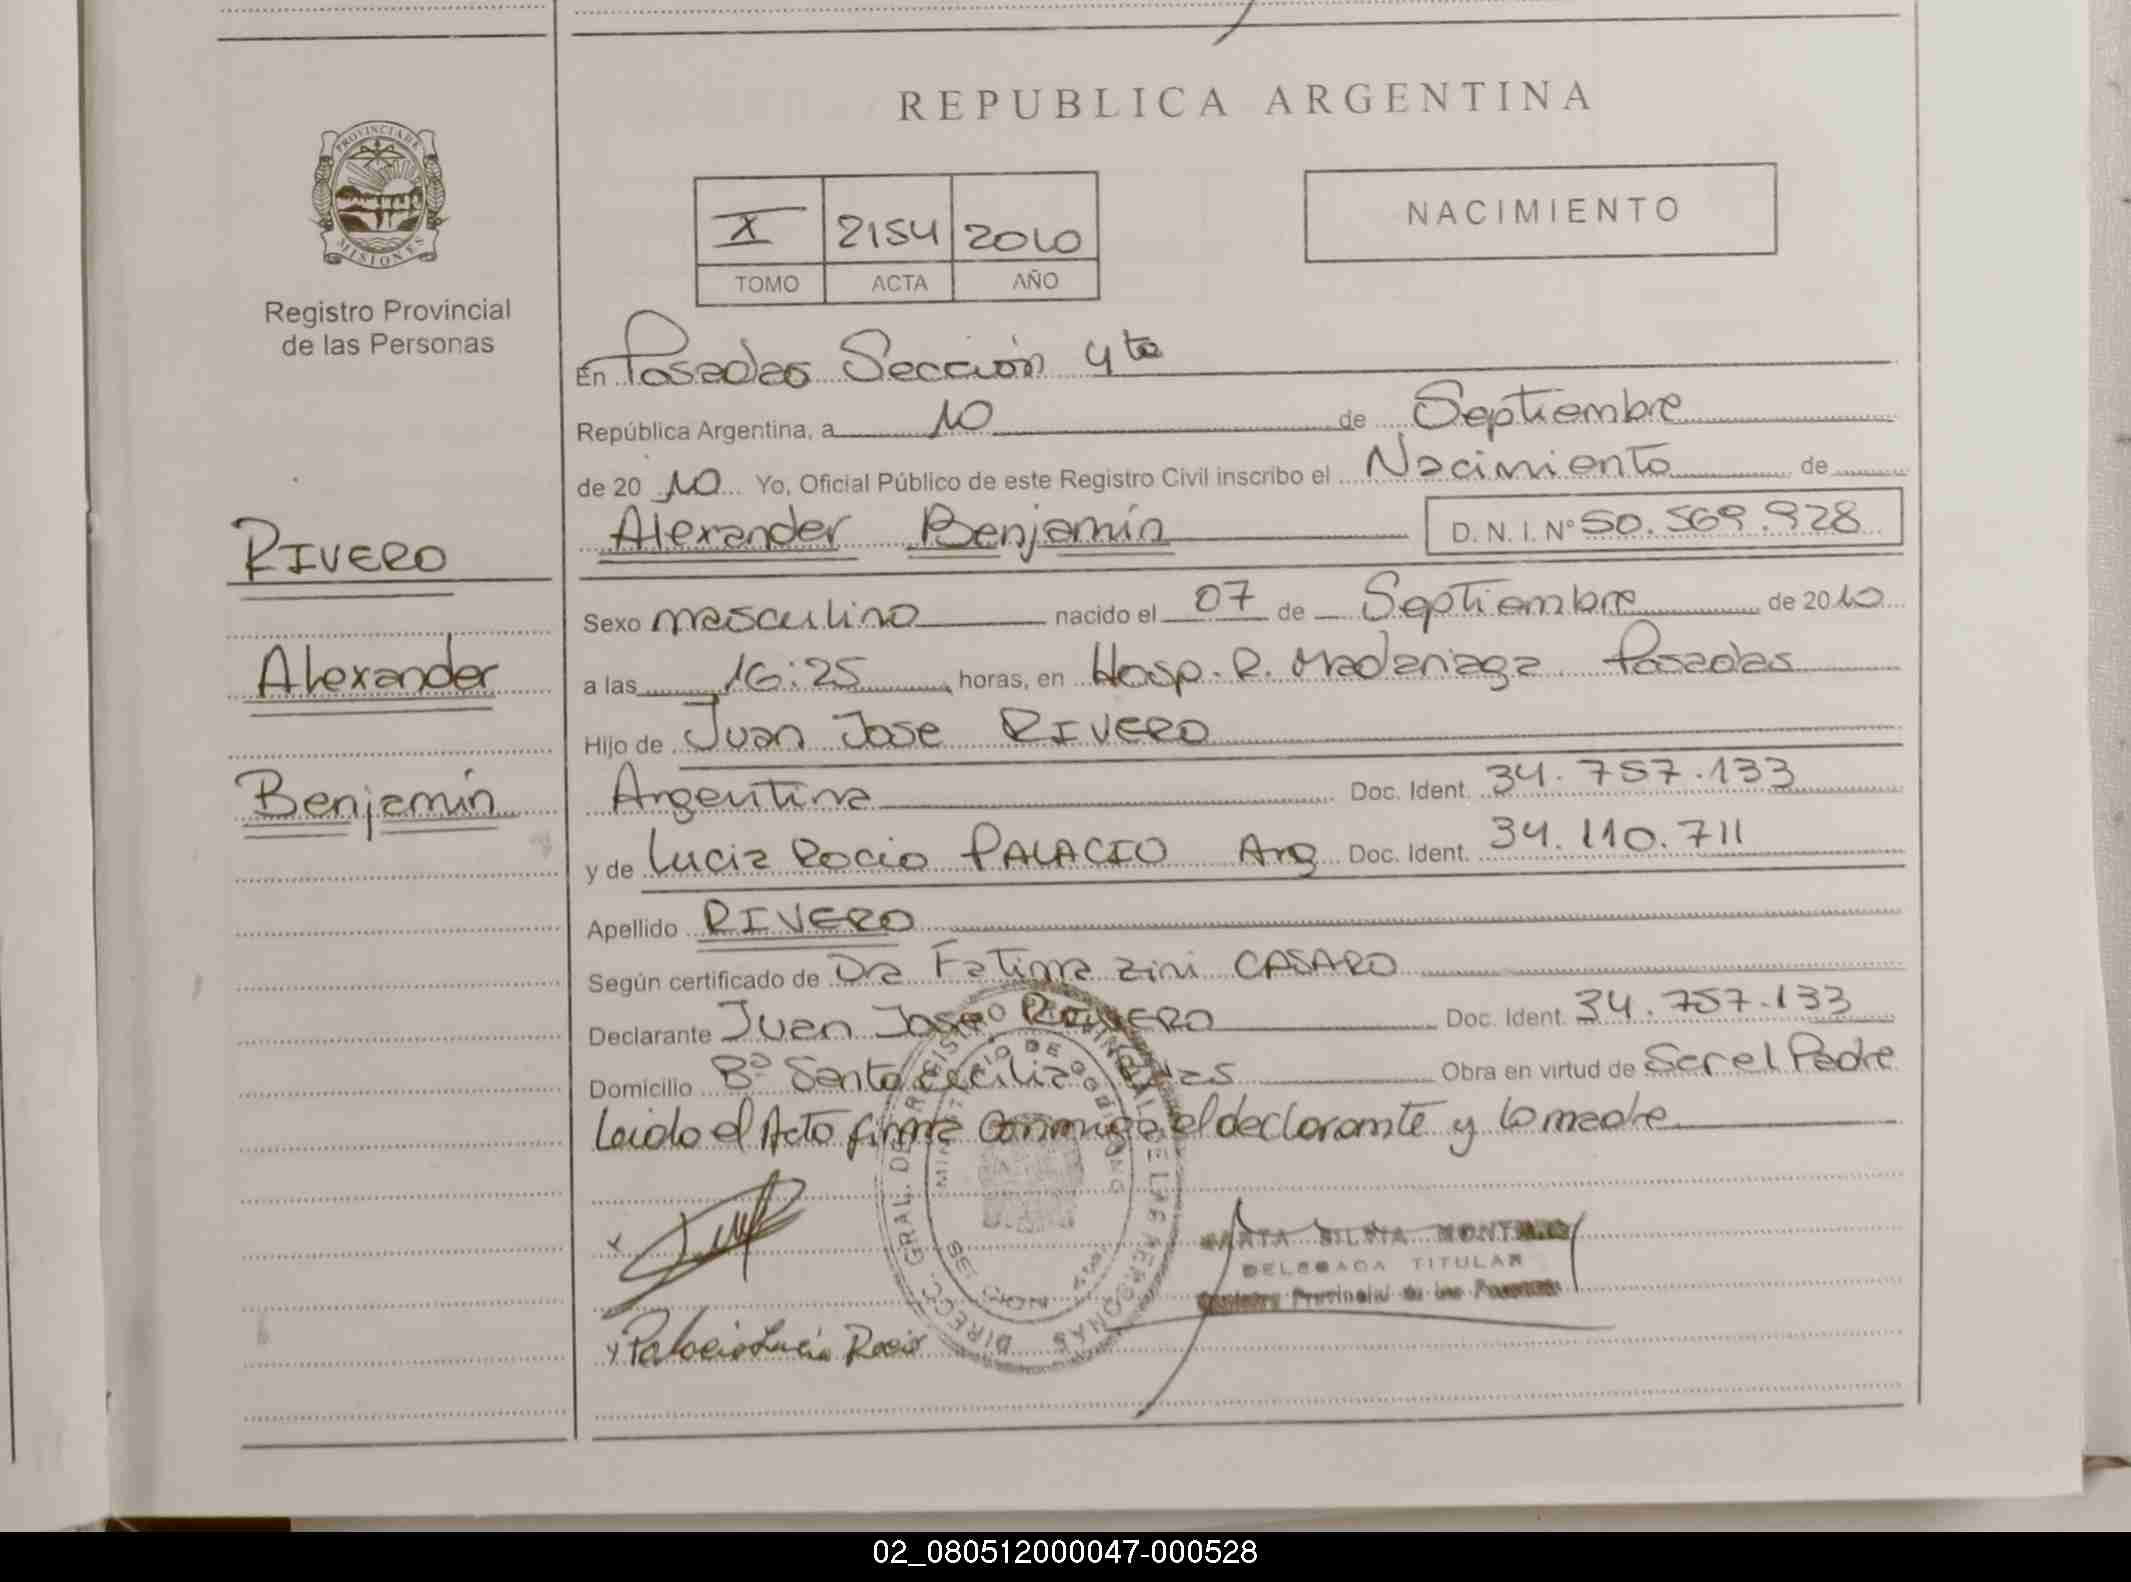 REPUBLICA ARGENTINA
PROVINCIA DE MISIONES
Registro Provincial
de las Personas
X 2154 2010
TOMO ACTA AÑO
NACIMIENTO
En Posadas Sección 4ta
República Argentina, a 10 de Septiembre
de 2010 Yo, Oficial Público de este Registro Civil inscribo el Nacimiento de
Alexander Benjamín D. N. I. Nº 50.569.928
RIVERO
Alexander
Benjamín
Sexo masculino nacido el 07 de Septiembre de 2010
a las 16:25 horas, en Hosp. R. Madariaga Posadas
Hijo de Juan Jose RIVERO
Argentina Doc. Ident. 34.757.133
y de Lucia Rocio PALACIO Arg Doc. Ident. 34.110.711
Apellido RIVERO
Según certificado de Dra Fatima Zini CASARO
Declarante Juan Jose RIVERO Doc. Ident. 34.757.133
Domicilio Bº Santa Cecilia Obra en virtud de Ser el Padre
Leido el Acta firma conmigo el declarante y la madre
DIRECC. GRAL. DEL REGISTRO PROVINCIAL DE LAS PERSONAS
MINISTERIO DE GOBIERNO
MARTA SILVIA
DELEGADA TITULAR
Registro Provincial de las Personas
Palacio Lucia Rocio
02_080512000047-000528